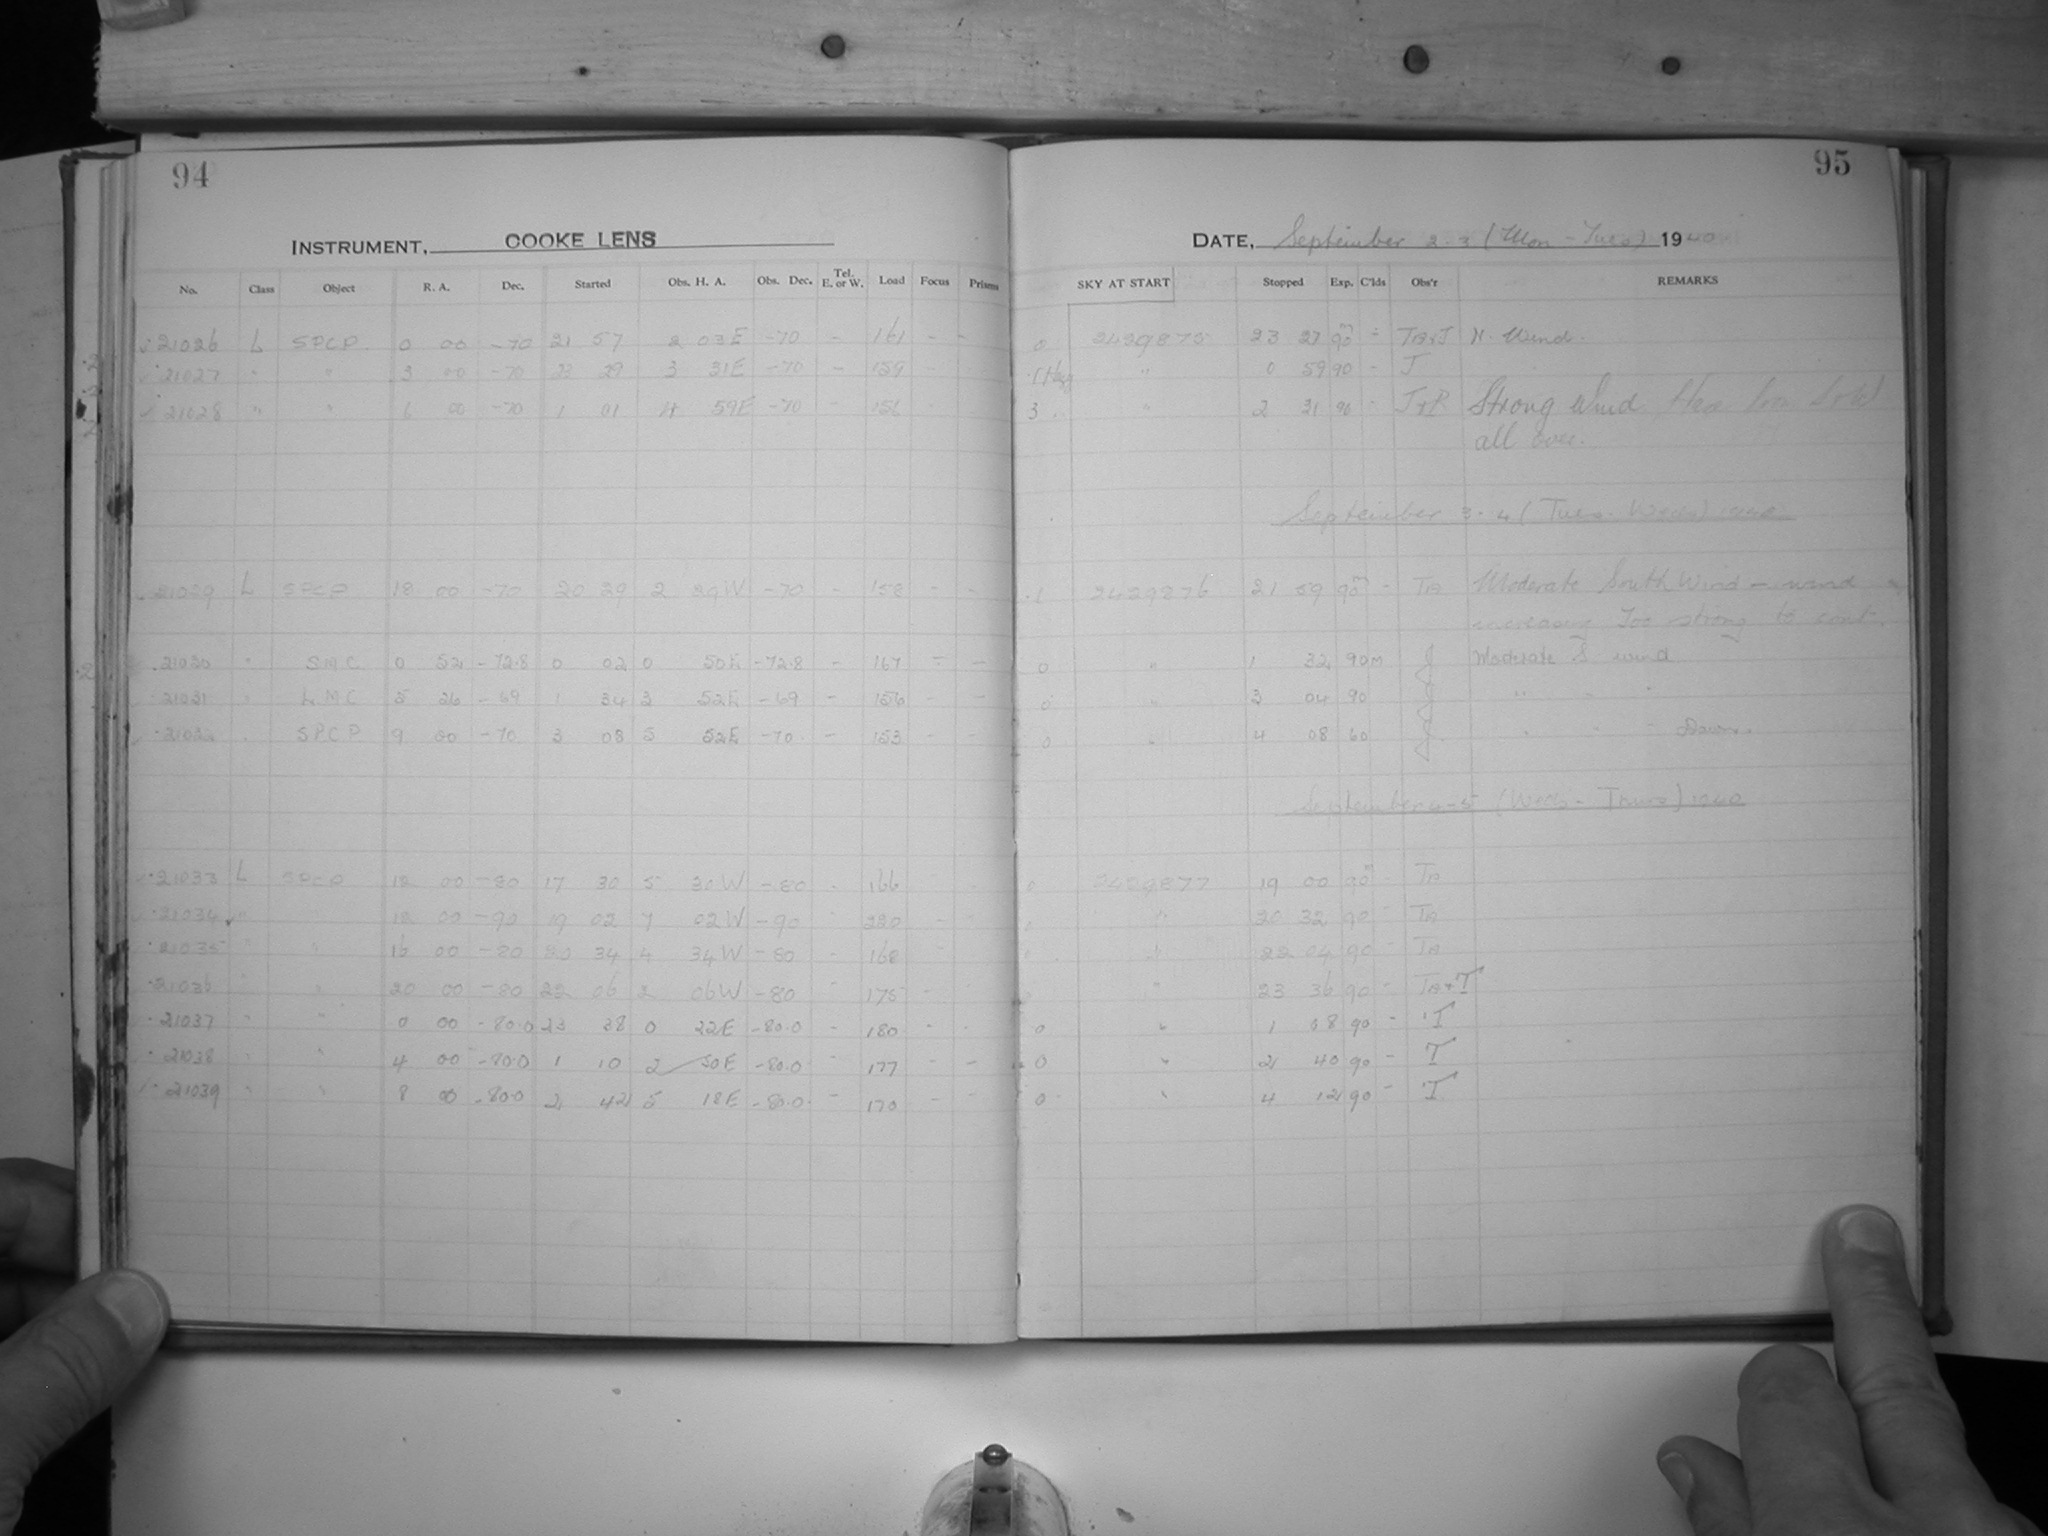 94
INSTRUMENT, COOKE LENS
No. Class Object R. A. Dec. Started Obs. H. A. Obs. Dec. Tel. E. or W. Load Focus Prisms
21026 L SPCP 0 00 -70 21 57 2 03E -70 - 161 - -
21027 " " 3 00 -70 23 29 3 31E -70 - 159 -
21028 " " 6 00 -70 1 01 4 59E -70 - 156 -
21029 L SPCP 18 00 -70 20 29 2 29W -70 - 158 - -
21030 " SMC 0 52 -72.8 0 02 0 50E -72.8 - 167 - -
21031 " LMC 5 26 -69 1 34 3 52E -69 - 156 - -
21032 " SPCP 9 00 -70 3 08 5 52E -70 - 153 - -
21033 L SPCP 12 00 -80 17 30 5 30W -80 - 166
21034 " " 12 00 -90 19 02 7 02W -90 - 220 -
21035 " " 16 00 -80 20 34 4 34W -80 - 168 -
21036 " " 20 00 -80 22 06 2 06W -80 - 175 -
21037 " " 0 00 -80.0 23 38 0 22E -80.0 - 180 -
21038 " " 4 00 -80.0 1 10 2 50E -80.0 - 177 - -
21039 " " 8 00 -80.0 2 42 5 18E -80.0 - 170 - -
95
DATE, September 2-3 (Mon - Tues) 1940
SKY AT START Stopped Exp. C'lds Obs'r REMARKS
0 2429875 23 27 90m - N. Wind.
" 0 59 90 - J
3 " 2 31 90 - J+R Strong Wind.
all over.
September 3-4 (Tues - Weds) 1940
.1 2429876 21 59 90m - Moderate South Wind - wind
increasing Too strong to cont.
0 " 1 32 90m J Moderate S wind
0 " 3 04 90 J " " "
0 " 4 08 60 J " " " Dawn.
September 4-5 (Weds - Thurs) 1940
0 2429877 19 00 90m
" 20 32 90 -
" 22 04 90 -
" 23 36 90 -
0 " 1 08 90 - T
0 " 2 40 90 - T
0 " 4 12 90 - T